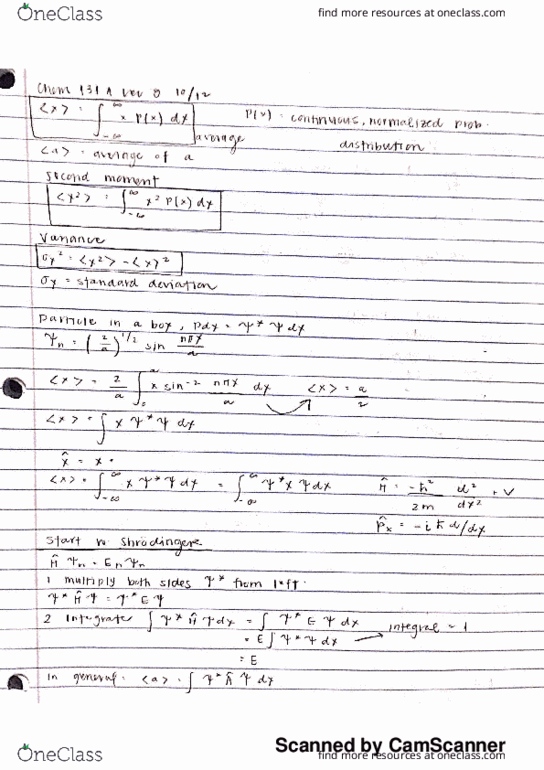 OneClass find more resources at oneclass.com
Chem 131A Lec 8 10/12
<x> = ∫_{-∞}^{∞} x P(x) dx P(x) = continuous, normalized prob.
average distribution
<a> = average of a
second moment
<x²> = ∫_{-∞}^{∞} x² P(x) dx
Variance
σx² = <x²> - <x>²
σx = standard deviation
Particle in a box, Pdx = Ψ* Ψ dx
Ψn = (2/a)^{1/2} sin nπx/a
<x> = 2/a ∫_0^a x sin² nπx/a dx <x> = a/2
<x> = ∫ x Ψ* Ψ dx
x̂ = x •
<x> = ∫_{-∞}^{∞} x Ψ* Ψ dx = ∫_{-∞}^{∞} Ψ* x Ψ dx Ĥ = -ħ²/2m d²/dx² + V
P̂x = -iħ d/dx
Start w Shrodingere
Ĥ Ψn = En Ψn
1 multiply both sides Ψ* from left
Ψ* Ĥ Ψ = Ψ* E Ψ
2 Integrate ∫ Ψ* Ĥ Ψ dx = ∫ Ψ* E Ψ dx
= E ∫ Ψ* Ψ dx → integral = 1
= E
In general <a> = ∫ Ψ* Â Ψ dx
Scanned by CamScanner
OneClass find more resources at oneclass.com